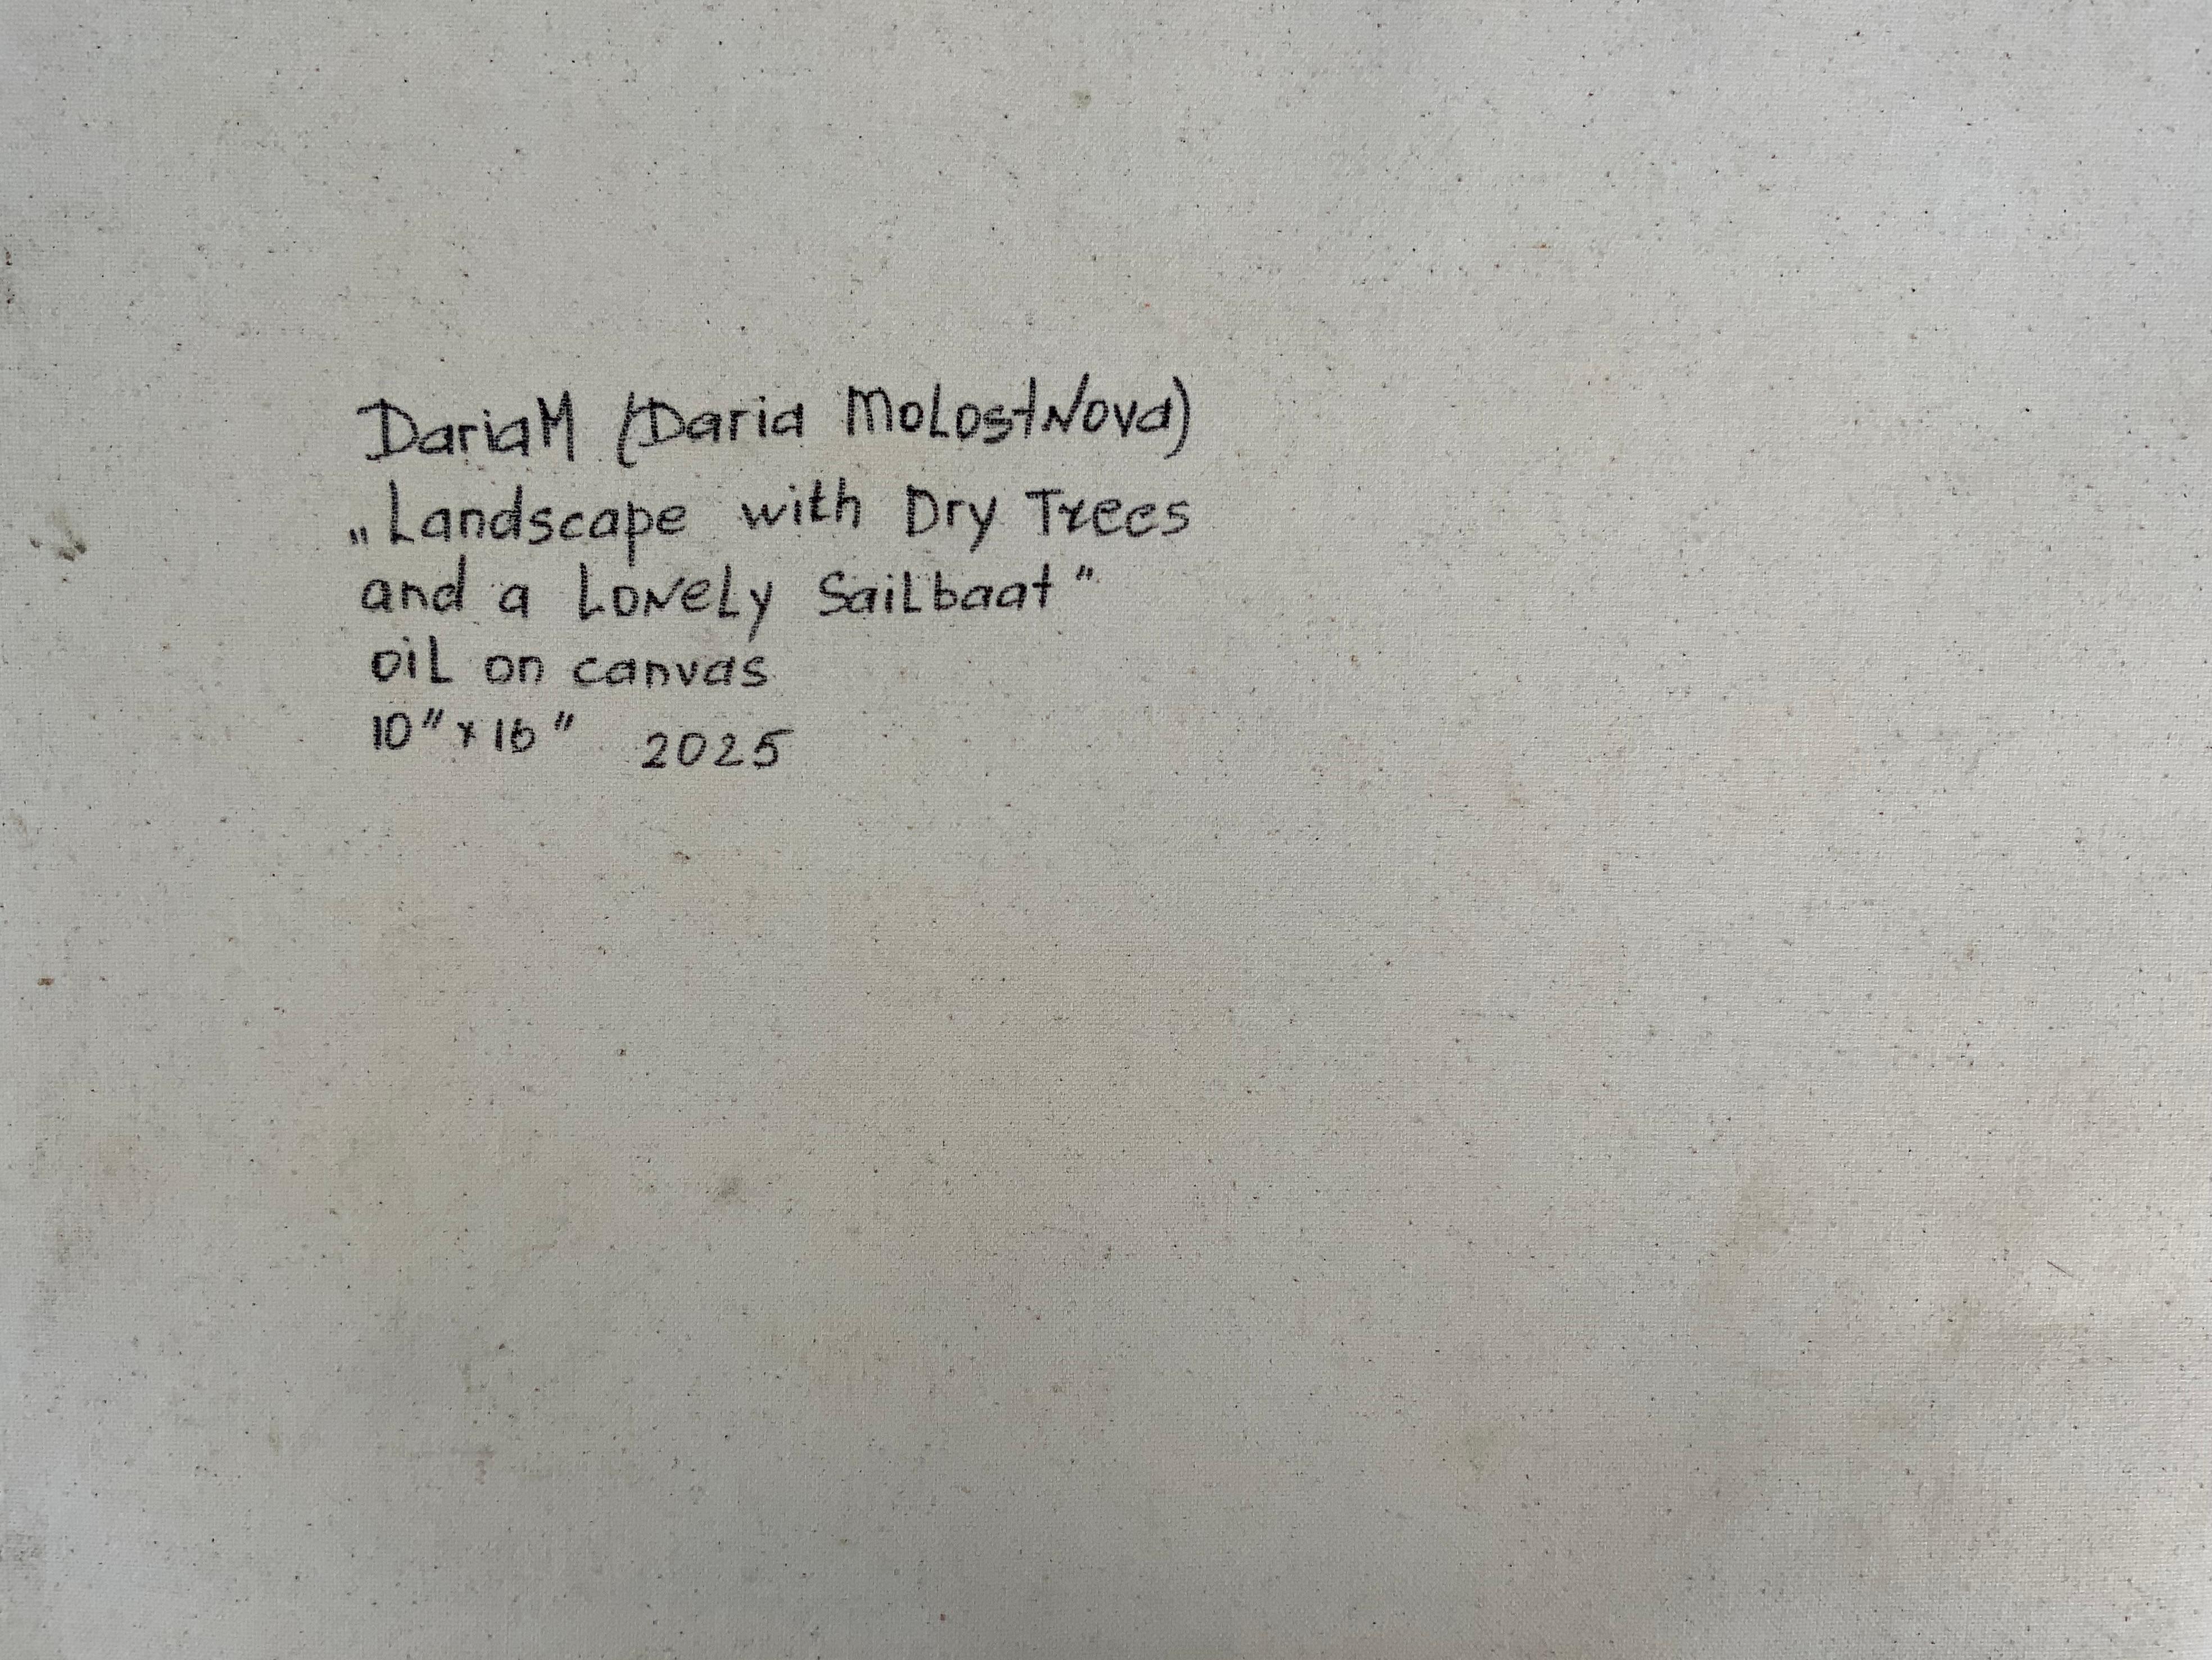 DariaM (Daria MoLostNova)
„Landscape with Dry Trees
and a LoNeLy SaiLbaat"
oiL on canvas
10" x 16" 2025